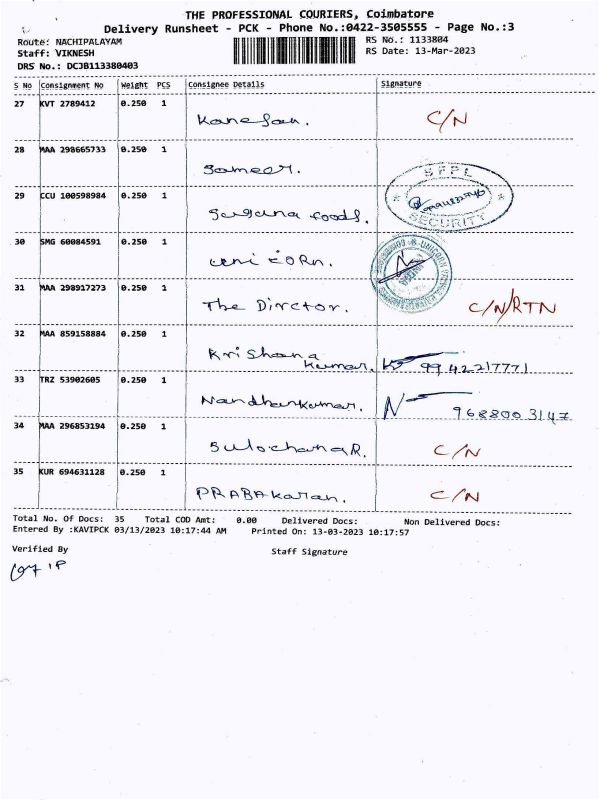 THE PROFESSIONAL COURIERS, Coimbatore
Delivery Runsheet - PCK - Phone No.:0422-3505555 - Page No.:3
Route: NACHIPALAYAM RS No.: 1133804
Staff: VIKNESH RS Date: 13-Mar-2023
DRS No.: DCJB113380403
S No Consignment No Weight PCS Consignee Details Signature
27 KVT 2789412 0.250 1 Kanesan. C/N
28 MAA 298665733 0.250 1 Sameer.
SFPL
SECURITY
29 CCU 100598984 0.250 1 Suguna foods.
30 SMG 60084591 0.250 1 uni CORn.
31 MAA 298917273 0.250 1 The Dirctor. C/N/RTN
32 MAA 859158884 0.250 1 Krishana
Kumar. 9942217771
33 TRZ 53902605 0.250 1 Nandhakumar. 9688003147
34 MAA 296853194 0.250 1 SulochanaR. C/N
35 KUR 694631128 0.250 1 PRABAkaran. C/N
Total No. Of Docs: 35 Total COD Amt: 0.00 Delivered Docs: Non Delivered Docs:
Entered By :KAVIPCK 03/13/2023 10:17:44 AM Printed On: 13-03-2023 10:17:57
Verified By Staff Signature